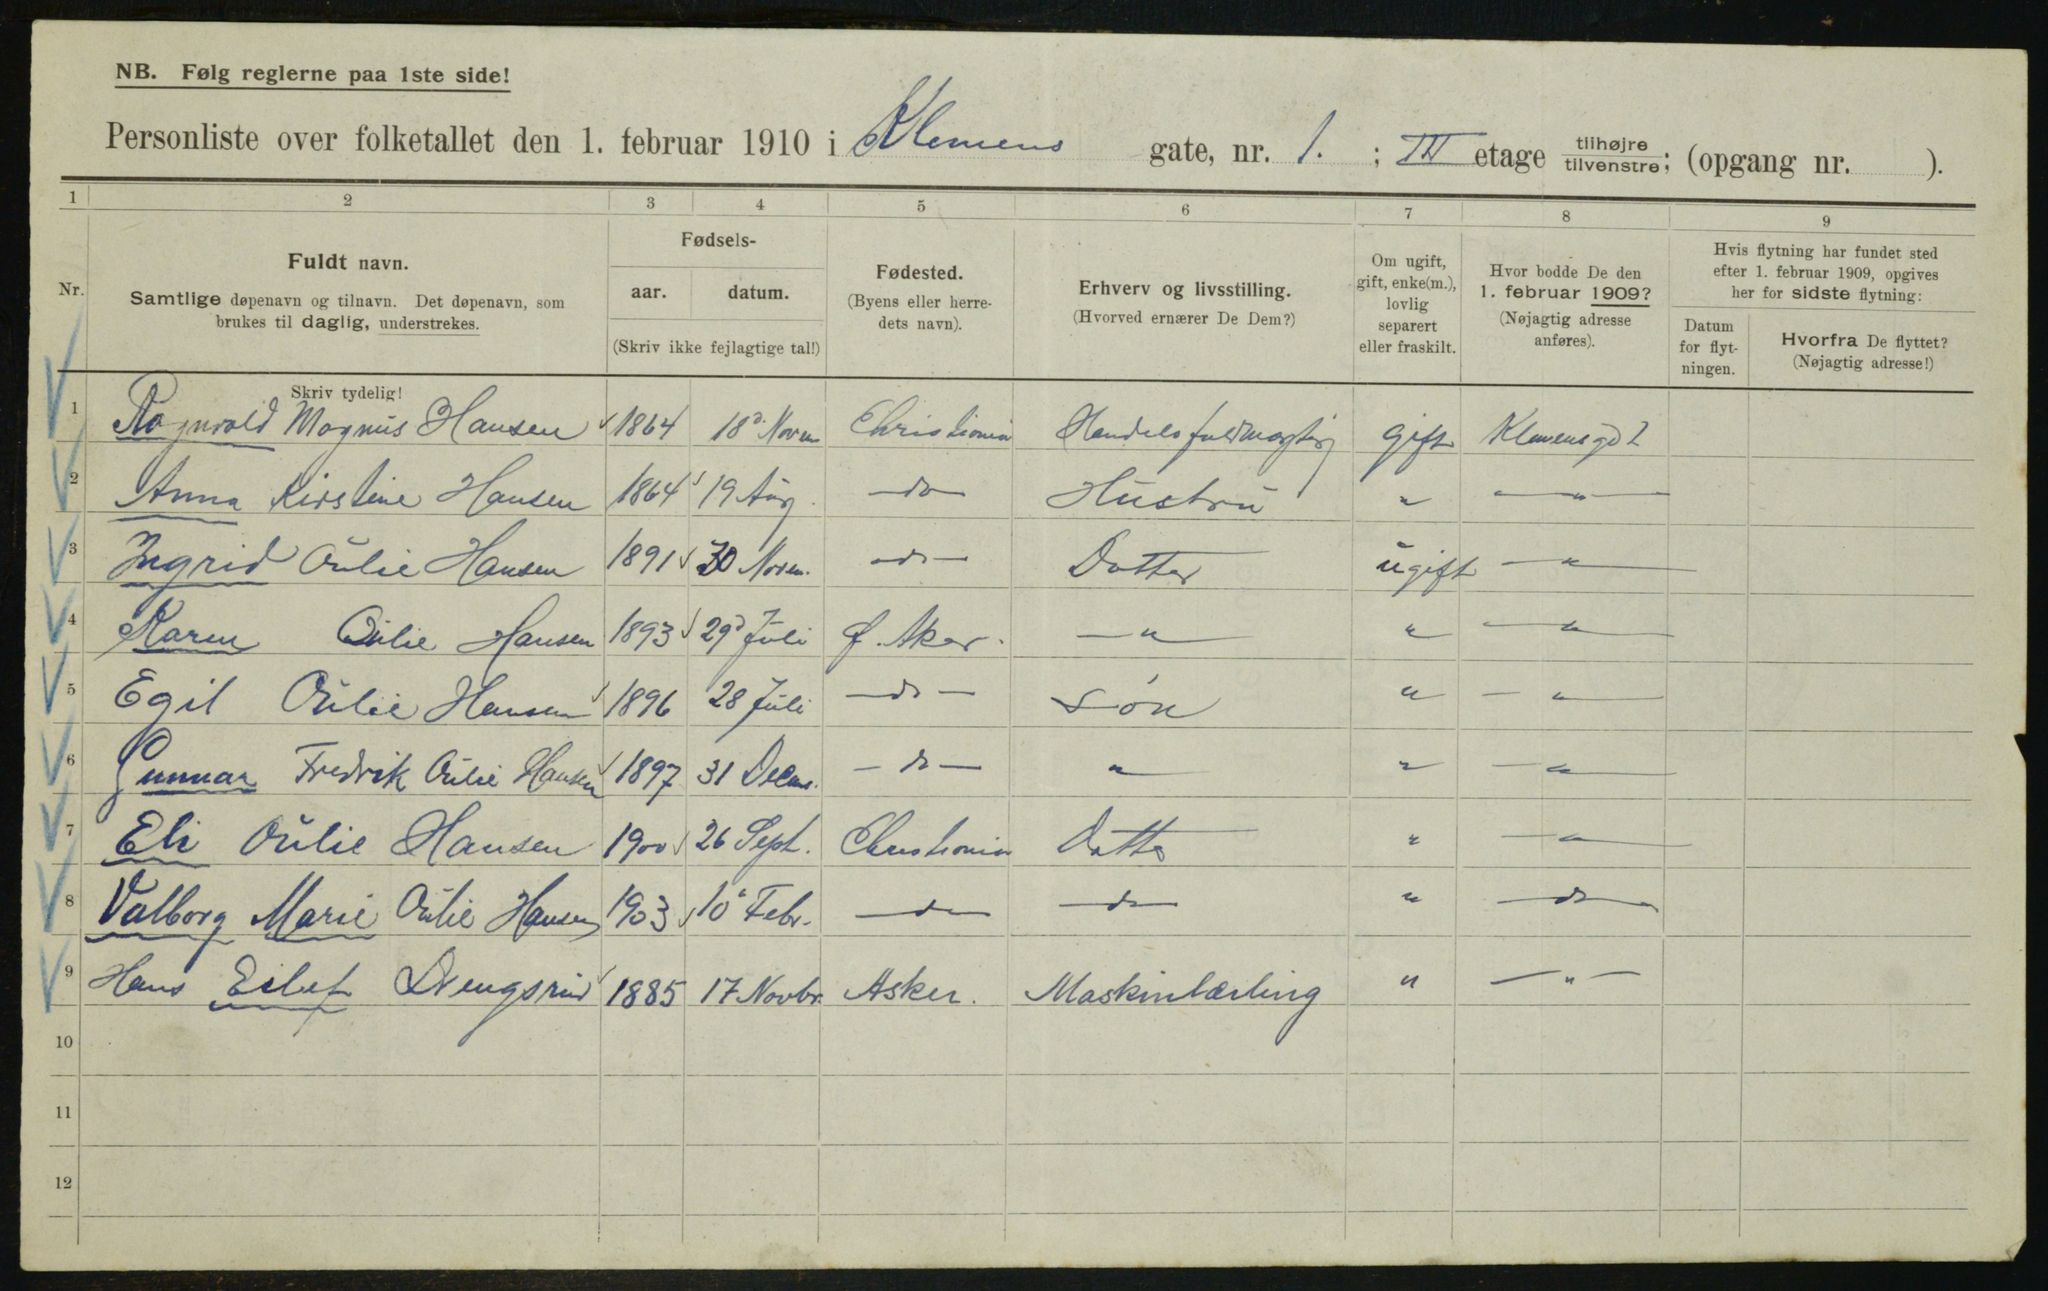 NB. Følg reglerne paa 1ste side!
Personliste over folketallet den 1. februar 1910 i Klemens gate, nr. 1. ; III etage tilhøjre tilvenstre; (opgang nr. ).
1 2 3 4 5 6 7 8 9
Nr. Fuldt navn. Samtlige døpenavn og tilnavn. Det døpenavn, som brukes til daglig, understrekes.
Fødsels- aar. datum. (Skriv ikke fejlagtige tal!)
Fødested. (Byens eller herredets navn).
Erhverv og livsstilling. (Hvorved ernærer De Dem?)
Om ugift, gift, enke(m.), lovlig separert eller fraskilt.
Hvor bodde De den 1. februar 1909? (Nøjagtig adresse anføres).
Hvis flytning har fundet sted efter 1. februar 1909, opgives her for sidste flytning:
Datum for flytningen. Hvorfra De flyttet? (Nøjagtig adresse!)
Skriv tydelig!
1 Ragnvald Magnus Hansen 1864 18d Novm Christiania Handelsfuldmægtig gift Klemensgd 1
2 Anna Kirstine Hansen 1864 19 Aug. -do- Hustru " - " -
3 Ingrid Oulie Hansen 1891 30 Novm. -do- Datter ugift - " -
4 Karen Oulie Hansen 1893 29d Juli Ø. Aker. - " - " - " -
5 Egil Oulie Hansen 1896 28 Juli -do- Søn " - " -
6 Gunnar Fredrik Oulie Hansen 1897 31 Decm. -do- " " - " -
7 Eli Oulie Hansen 1900 26 Sept. Christiania Datter " - " -
8 Valborg Marie Oulie Hansen 1903 10 Febr. -do- -do- " -do-
9 Hans Eilef Drengsrud 1885 17 Novbr. Asker. Maskinlærling " - " -
10
11
12